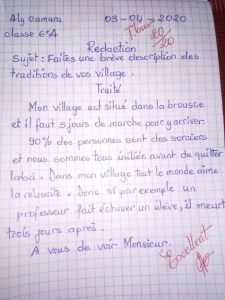 Aly camara 03-04-2020
classe 6eA 20
20
Redaction
Sujet: Faites une brève description des
traditions de vos village.
Traité
Mon village est situé dans la brousse
et il faut 5 jours de marche pour y arriver.
90% des personnes sont des sorciers
et nous sommes tous initiés avant de quitter
labà. Dans mon village tout le monde aime
la réussite. Donc si par exemple un
professeur fait échouer un élève, il meurt
trois jours après.
A vous de voir Monsieur.
Excellent